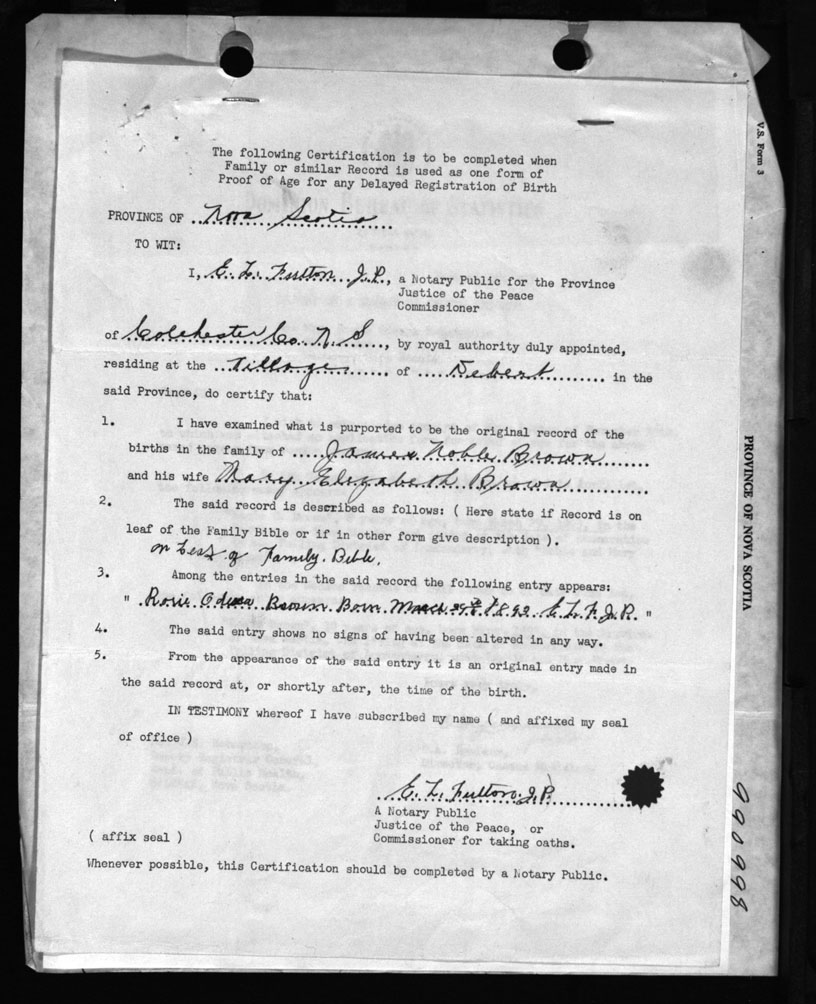 The following Certification is to be completed when
Family or similar Record is used as one form of
Proof of Age for any Delayed Registration of Birth
PROVINCE OF ..Nova Scotia..
TO WIT:
I, E. L. Fulton J.P., a Notary Public for the Province
Justice of the Peace
Commissioner
of Colchester Co. N S, by royal authority duly appointed,
residing at the Village of Debert in the
said Province, do certify that:
1. I have examined what is purported to be the original record of the
births in the family of James Noble Brown
and his wife Mary Elizabeth Brown
2. The said record is described as follows: ( Here state if Record is on
leaf of the Family Bible or if in other form give description ).
on of Family Bible.
3. Among the entries in the said record the following entry appears:
" Rosie Brown Born March 1892 E. L. F. J.P. "
4. The said entry shows no signs of having been altered in any way.
5. From the appearance of the said entry it is an original entry made in
the said record at, or shortly after, the time of the birth.
IN TESTIMONY whereof I have subscribed my name ( and affixed my seal
of office )
E. L. Fulton J.P.
A Notary Public
Justice of the Peace, or
Commissioner for taking oaths.
( affix seal )
Whenever possible, this Certification should be completed by a Notary Public.
V.S. Form 3
PROVINCE OF NOVA SCOTIA